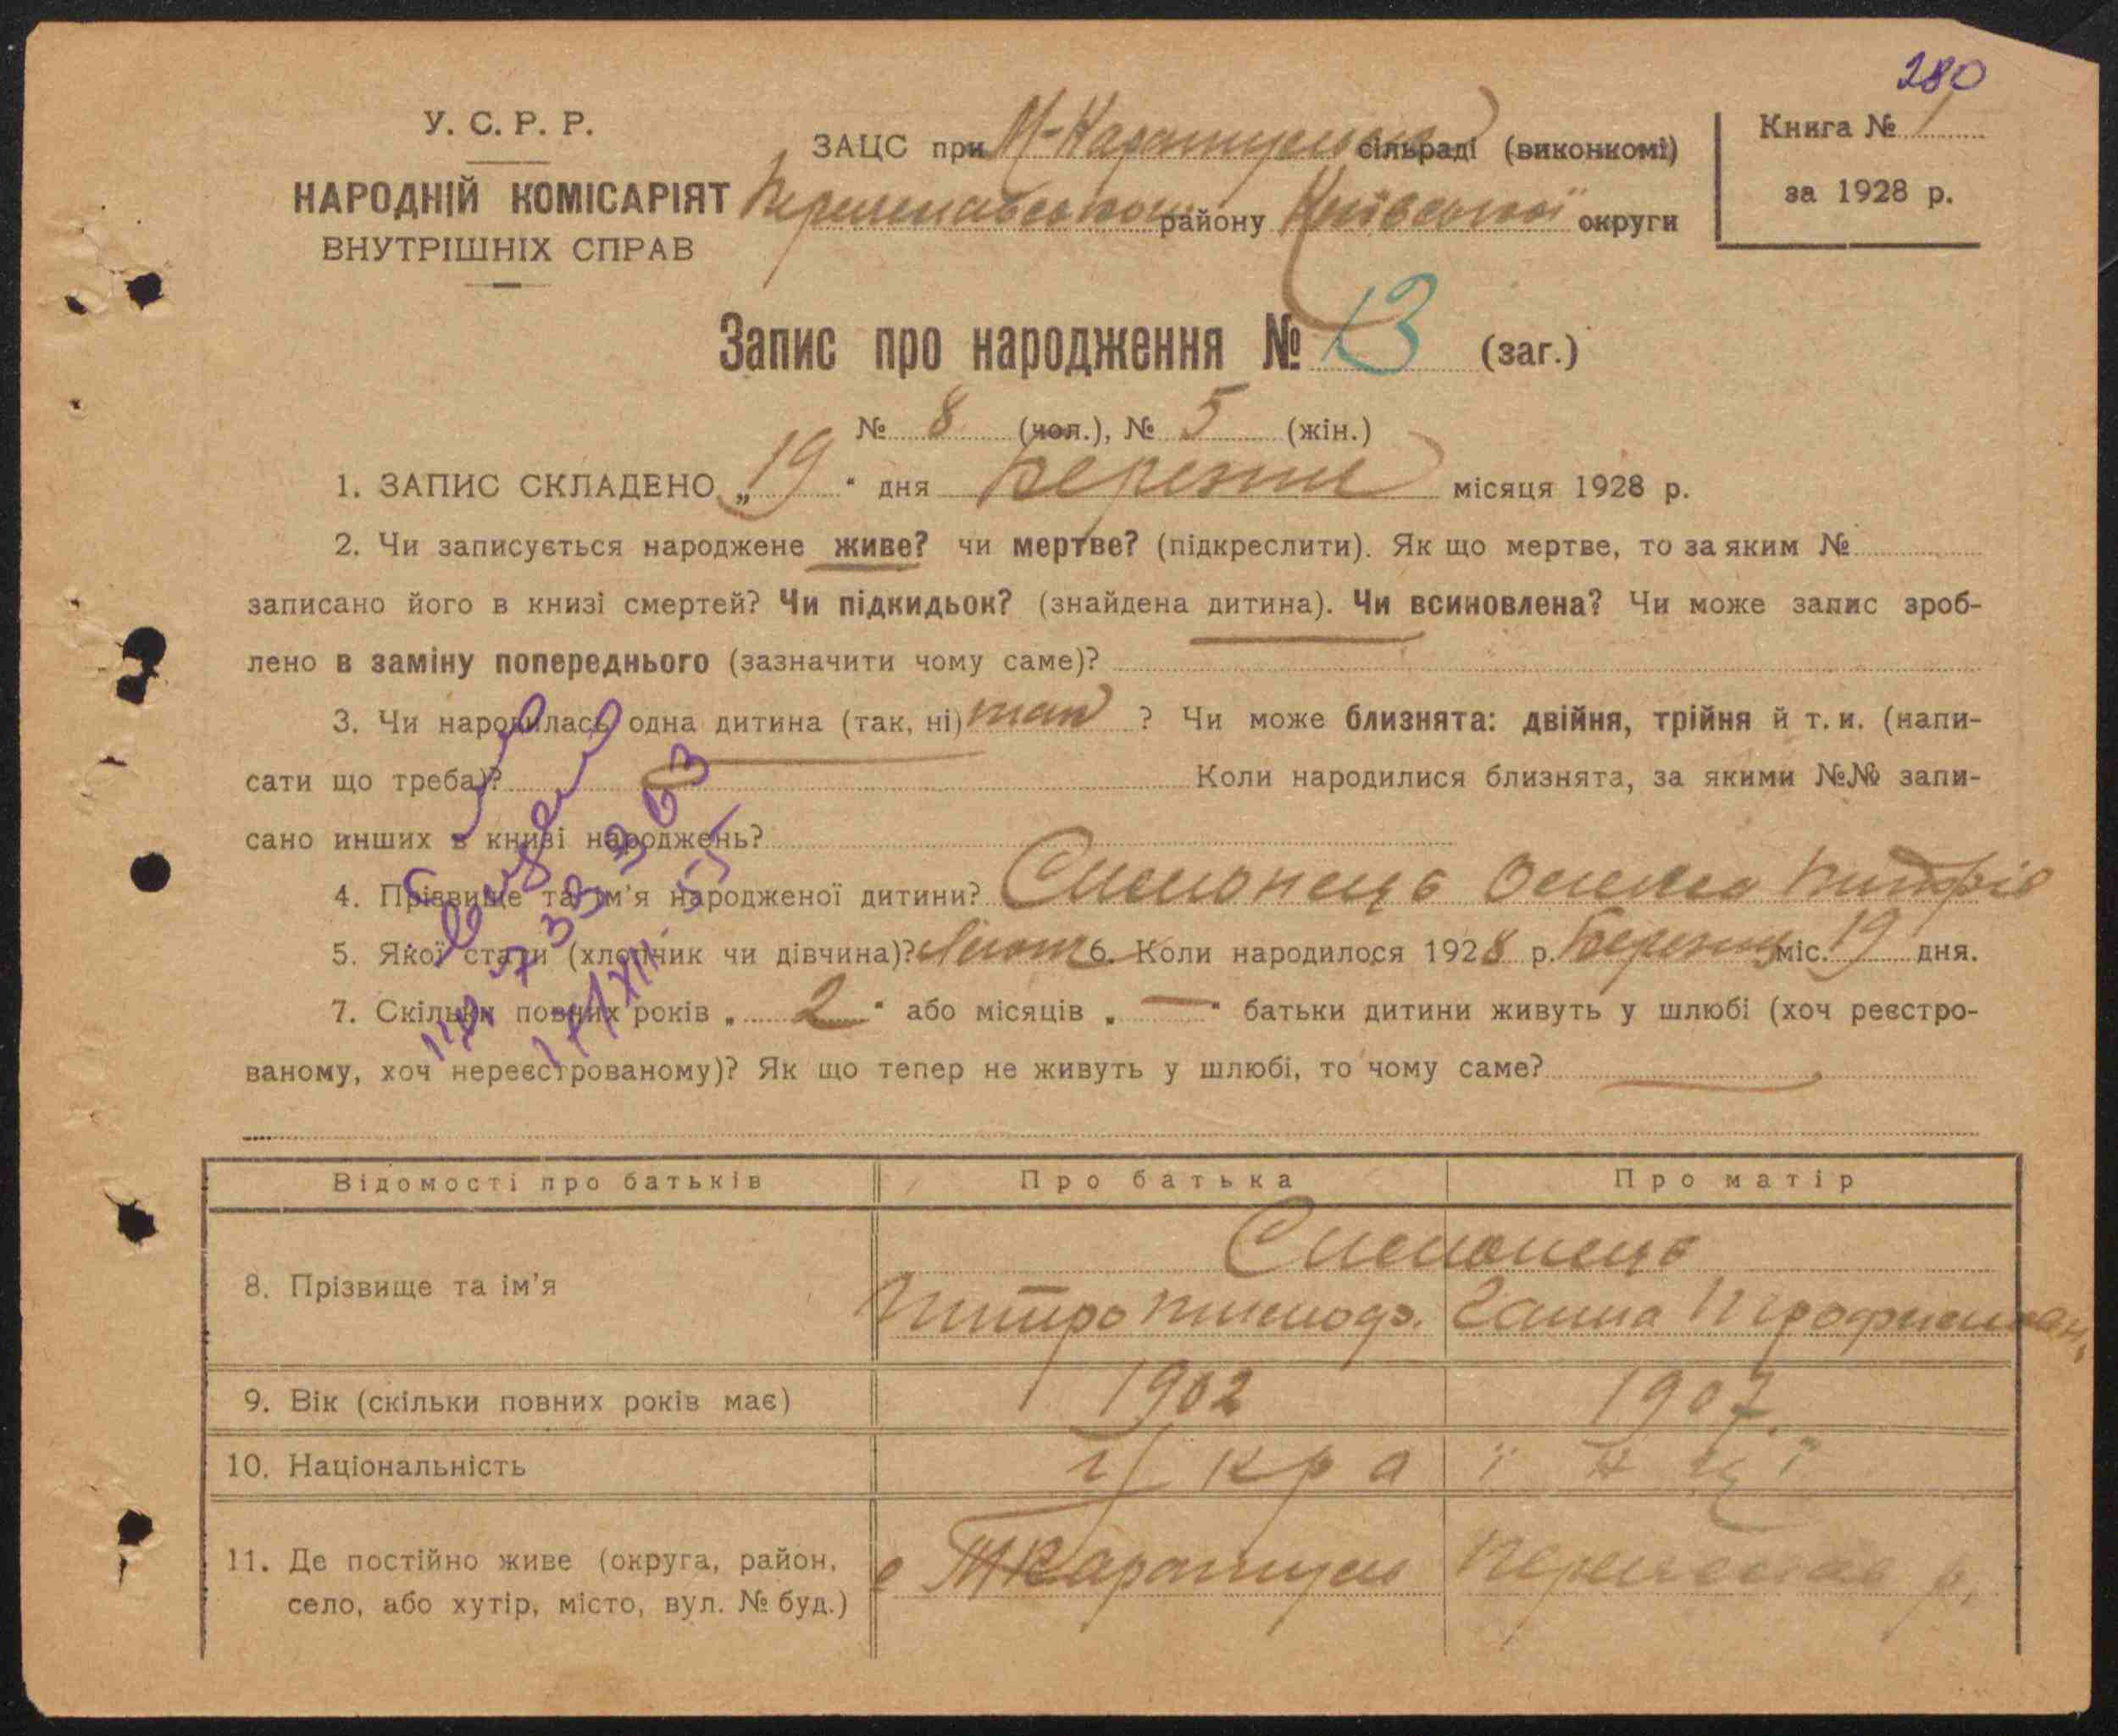 280
У. С. Р. Р.
НАРОДНІЙ КОМІСАРІЯТ
ВНУТРІШНІХ СПРАВ
ЗАЦС при сільраді (виконкомі)
району Київської округи
Книга № 1
за 1928 р.
Запис про народження № 13 (заг.)
№ 8 (чол.), № 5 (жін.)
1. ЗАПИС СКЛАДЕНО „ 19 “ дня Березня місяця 1928 р.
2. Чи записується народжене живе? чи мертве? (підкреслити). Як що мертве, то за яким №
записано його в книзі смертей? Чи підкидьок? (знайдена дитина). Чи всиновлена? Чи може запис зроб-
лено в заміну попереднього (зазначити чому саме)?
3. Чи народилась одна дитина (так, ні) так ? Чи може близнята: двійня, трійня й т. и. (напи-
сати що треба)? Коли народилися близнята, за якими №№ запи-
сано инших в книзі народжень?
4. Прізвище та ім’я народженої дитини?
5. Якої стати (хлопчик чи дівчина)? 6. Коли народилося 1928 р. Березня міс. 19 дня.
7. Скільки повних років „ 2 “ або місяців „ — “ батьки дитини живуть у шлюбі (хоч реєстро-
ваному, хоч нереєстрованому)? Як що тепер не живуть у шлюбі, то чому саме?
Відомості про батьків Про батька Про матір
8. Прізвище та ім’я
Ганна
9. Вік (скільки повних років має) 1902 1907
10. Національність Українці
11. Де постійно живе (округа, район,
село, або хутір, місто, вул. № буд.)